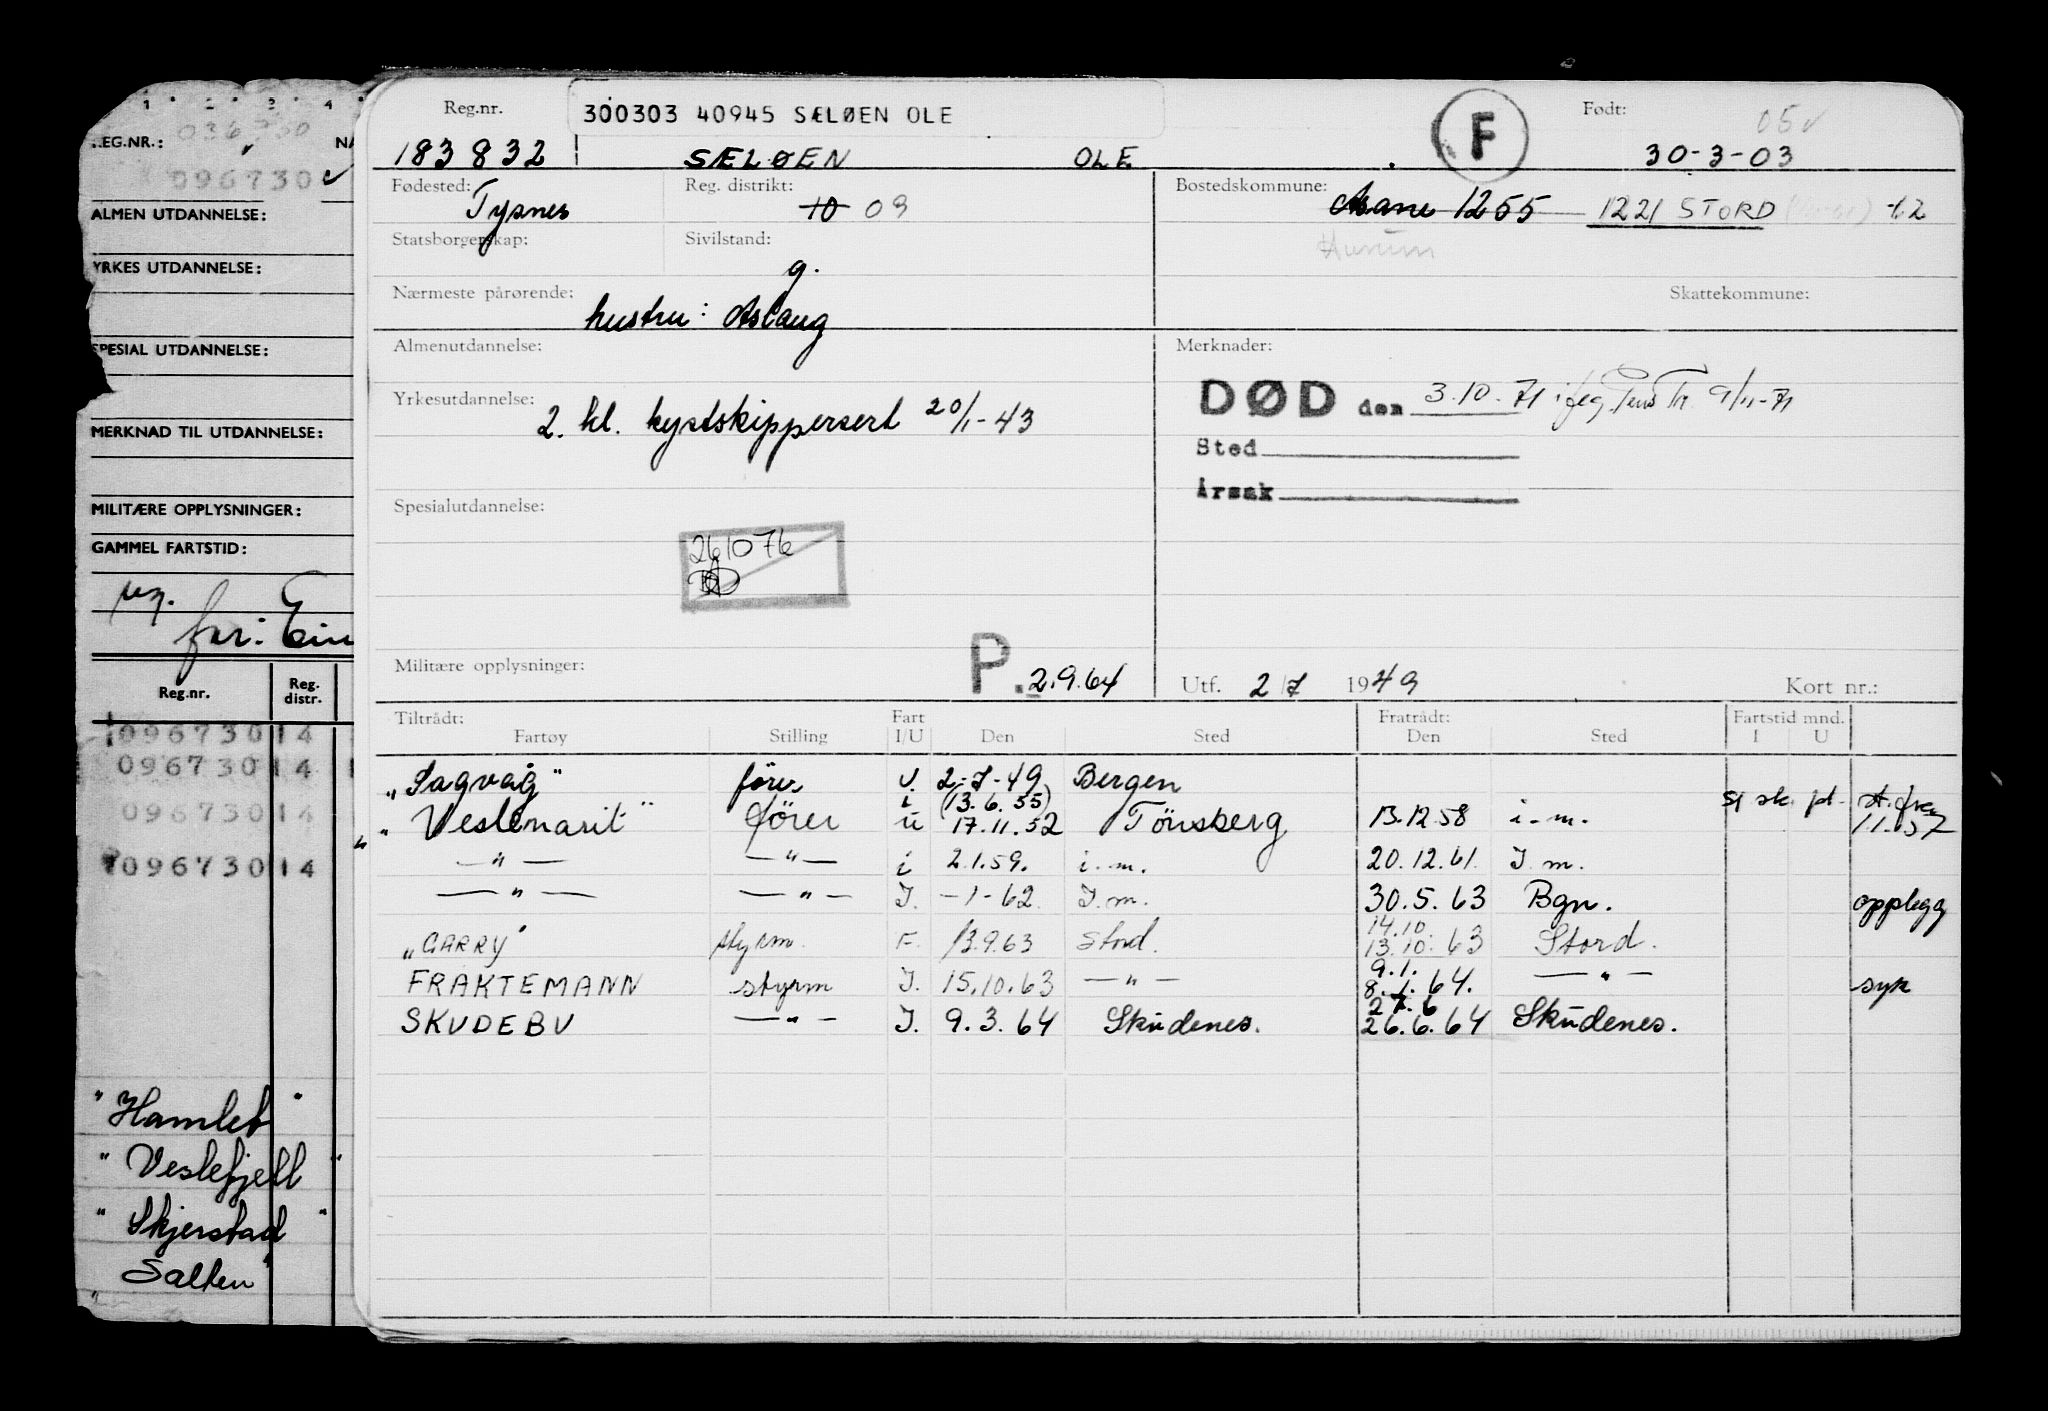 1 2 3 4
REG.NR.: 036750 NA
096730
ALMEN UTDANNELSE:
YRKES UTDANNELSE:
SPESIAL UTDANNELSE:
MERKNAD TIL UTDANNELSE:
MILITÆRE OPPLYSNINGER:
GAMMEL FARTSTID:
ug.
far: Ein
Reg.nr. Reg. distr.
096730 14
096730 14
096730 14
096730 14
"Hamlet"
"Veslefjell"
"Skjerstad"
"Salten"
Reg.nr. 300303 40945 SÆLØEN OLE F Født: 05
183832 SÆLØEN OLE. 30-3-03
Fødested: Tysnes Reg. distrikt: 10 09 Bostedskommune: Åsane 1255 1221 STORD
Statsborgerskap: Sivilstand: g. Hurum
Nærmeste pårørende: hustru: Aslaug Skattekommune:
Almenutdannelse: Merknader:
DØD den 3.10.71
Yrkesutdannelse: 2. kl. kystskippersert 20/1-43
Sted
Årsak
Spesialutdannelse:
261076
Militære opplysninger: P. 2.9.64 Utf. 2/7 1949 Kort nr.:
Tiltrådt: Fart Fratrådt: Fartstid mnd.
Fartøy Stilling I/U Den Sted Den Sted I U
"Sagvåg" fører u. 2-7-49 Bergen
i (13.6.55) sj sk. pt.
"Veslemarit" fører u 17.11.52 Tönsberg 13.12.58 i.m. 1.1.57
—"— —"— i 2.1.59. i.m. 20.12.61. I.m.
—"— —"— I. -1-62. I.m. 30.5.63 Bgn. opplegg
14.10
"GARRY" styrm. F. 13.9.63 Stord. 13.10.63 Stord.
9.1.
FRAKTEMANN styrm I. 15.10.63 —"— 8.1.64. —"— syk
27.6
SKUDEBU —"— I. 9.3.64 Skudenes. 26.6.64 Skudenes.